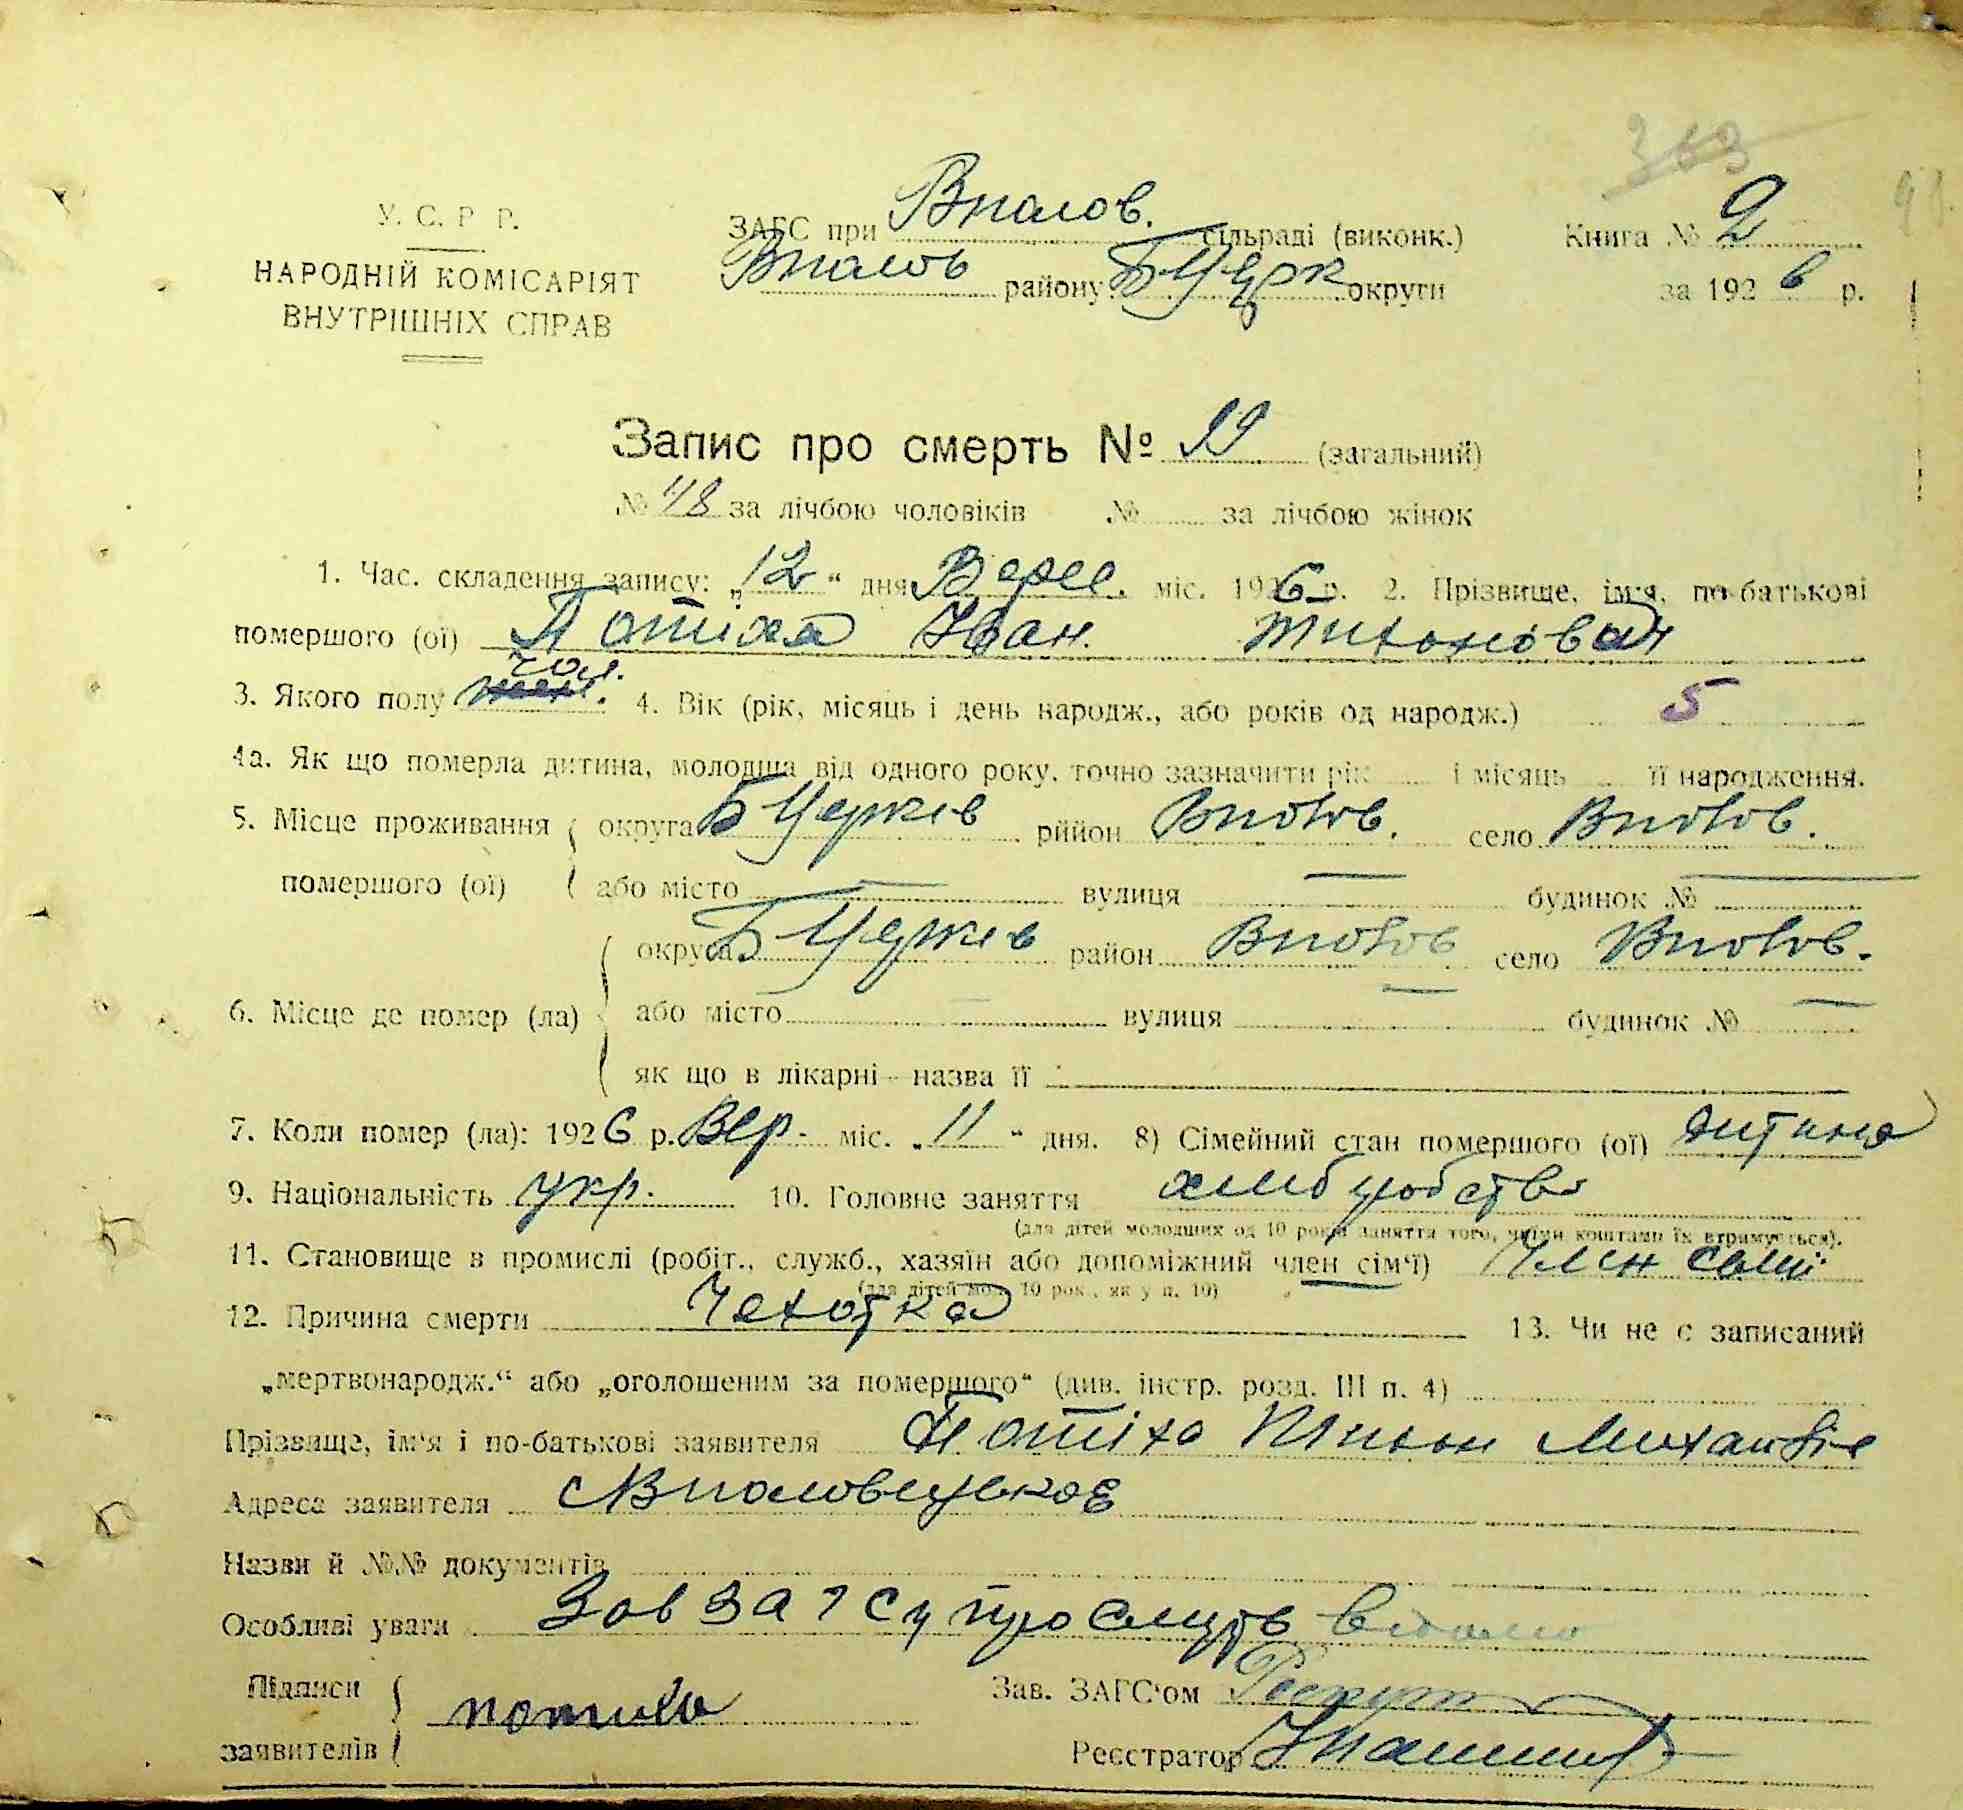 363
У. С. Р Р.
НАРОДНІЙ КОМІСАРІЯТ
ВНУТРІШНІХ СПРАВ
ЗАГС при Впалов. сільраді (виконк.) Книга № 2
Впалов району Б Церк округи за 1926 р.
Запис про смерть № 99 (загальний)
№ 48 за лічбою чоловіків № за лічбою жінок
1. Час. складення запису: „12“ дня Верес. міс. 1926 р. 2. Прізвище, ім'я, по-батькові
помершого (ої) Потіха Іван Тихонович
чол.
3. Якого полу 4. Вік (рік, місяць і день народж., або років од народж.) 5
4а. Як що померла дитина, молодша від одного року, точно зазначити рік і місяць її народження.
5. Місце проживання округа Б Церків рйион Вполов. село Вполов.
помершого (ої) або місто — вулиця — будинок № —
округа Б Церків район Вполов село Вполов.
6. Місце де помер (ла) або місто вулиця — будинок № —
як що в лікарні - назва її
7. Коли помер (ла): 1926 р. Вер. міс. „11“ дня. 8) Сімейний стан помершого (ої) дитина
9. Національність укр. 10. Головне заняття хлібробство
(для дітей молодших од 10 років заняття того, чиїми коштами їх втримується).
11. Становище в промислі (робіт., служб., хазяїн або допоміжний член сім'ї) Член сімї
(для дітей мол. 10 рок., як у п. 10)
12. Причина смерти Чехотка 13. Чи не є записаний
„мертвонародж.“ або „оголошеним за помершого“ (див. інстр. розд. III п. 4)
Прізвище, ім'я і по-батькові заявителя Потіха Тихон Михайлів
Адреса заявителя с Впаловецьков
Назви й №№ документів
Особливі уваги Зов загсу про смерть відомо
Підписи потиха Зав. ЗАГС'ом
заявителів Реєстратор